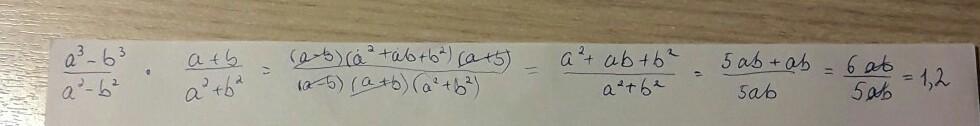 (a³-b³)/(a²-b²) · (a+b)/(a²+b²) = ((a-b)(a²+ab+b²)(a+b))/((a-b)(a+b)(a²+b²)) = (a²+ab+b²)/(a²+b²) = (5ab+ab)/(5ab) = (6ab)/(5ab) = 1,2